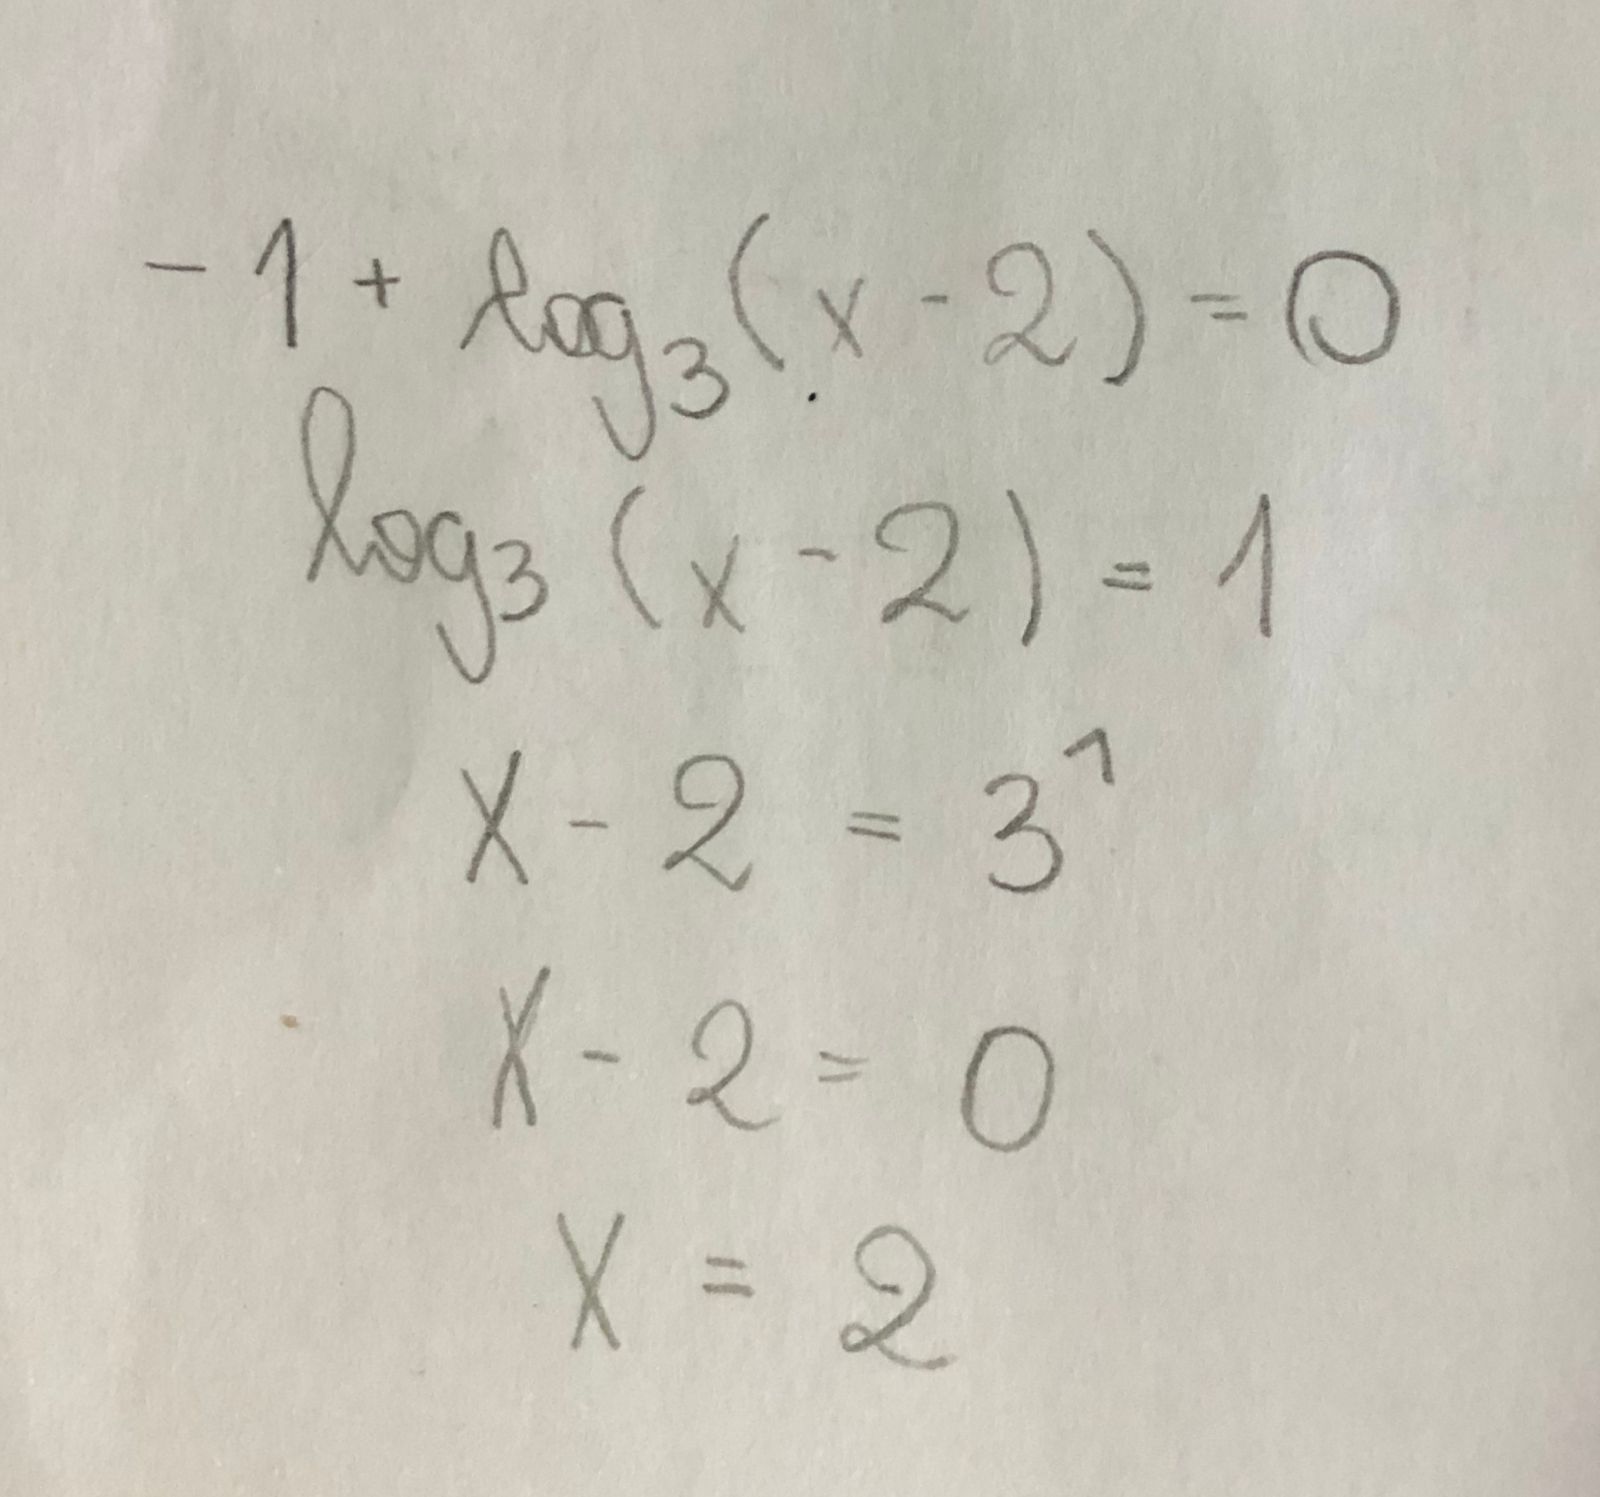 -1 + log₃(x - 2) = 0
log₃(x - 2) = 1
x - 2 = 3¹
x - 2 = 0
x = 2